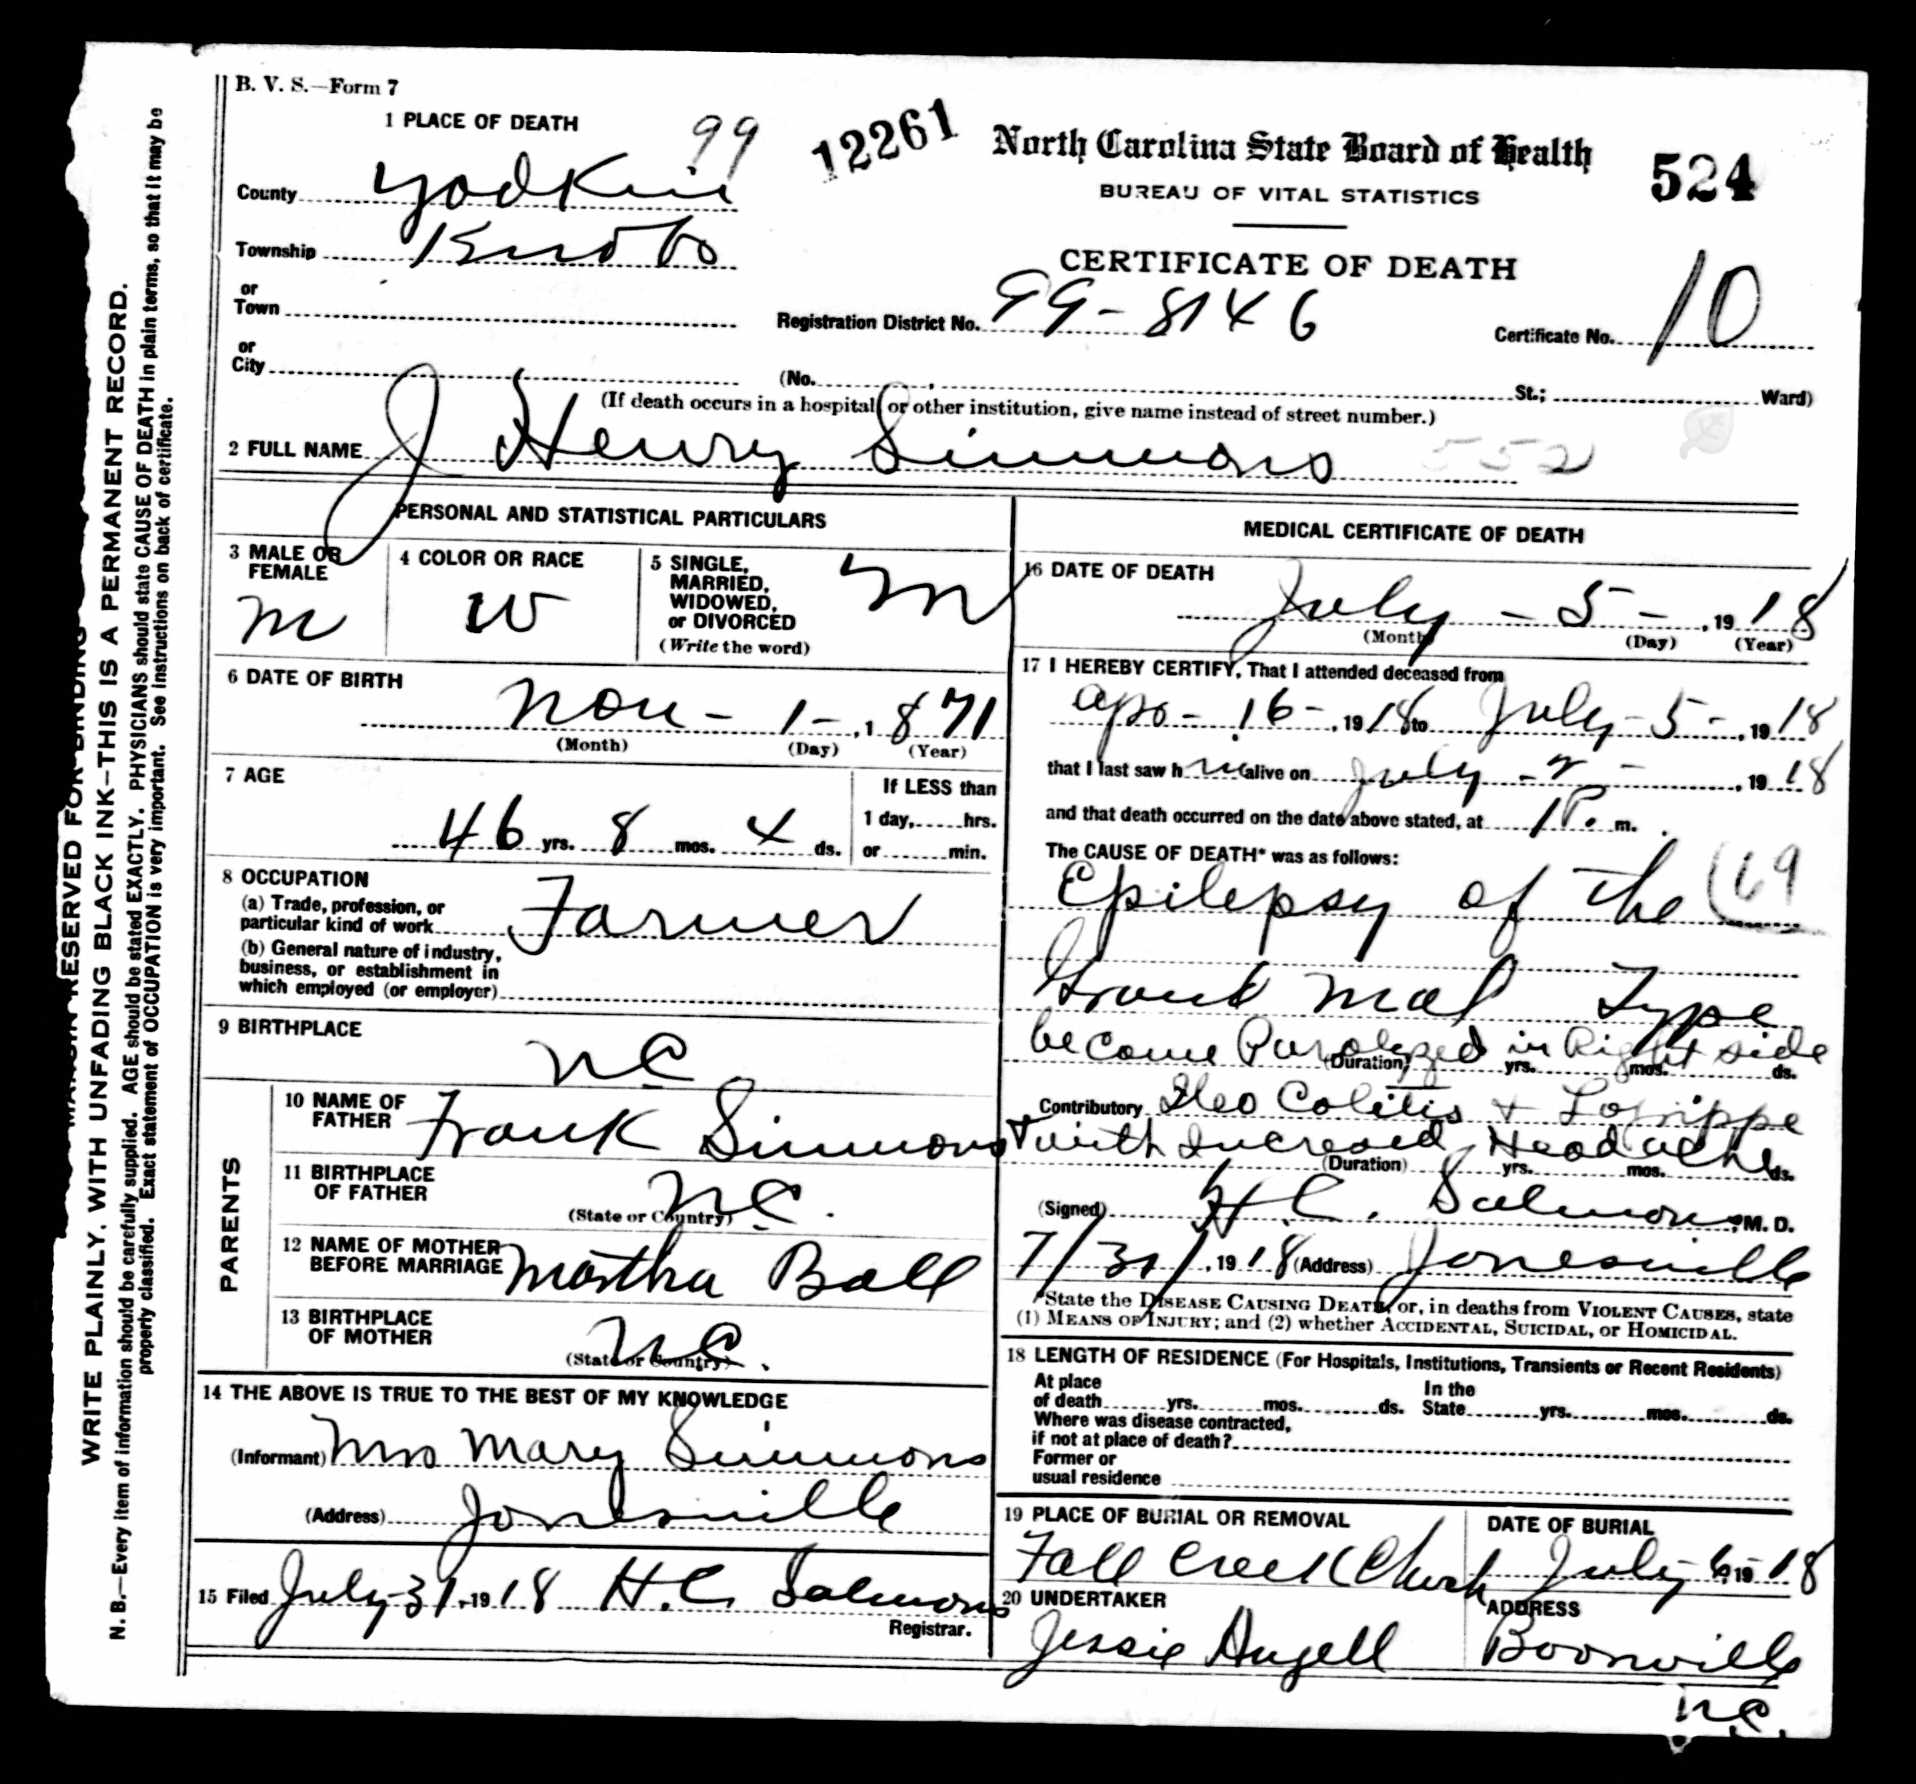 B. V. S.—Form 7
1 PLACE OF DEATH
99
12261
North Carolina State Board of Health
BUREAU OF VITAL STATISTICS
524
County Yadkin
Township Knobs
CERTIFICATE OF DEATH
or Town
Registration District No. 99-8146
Certificate No. 10
or City
(No. , St.; Ward)
(If death occurs in a hospital or other institution, give name instead of street number.)
2 FULL NAME J Henry Simmons 552
PERSONAL AND STATISTICAL PARTICULARS
3 MALE OR FEMALE
m
4 COLOR OR RACE
W
5 SINGLE, MARRIED, WIDOWED, or DIVORCED
(Write the word)
m
6 DATE OF BIRTH
Nov - 1 - , 1 871
(Month) (Day) (Year)
7 AGE
46 yrs. 8 mos. 4 ds.
If LESS than
1 day, hrs.
or min.
8 OCCUPATION
(a) Trade, profession, or
particular kind of work Farmer
(b) General nature of industry,
business, or establishment in
which employed (or employer)
9 BIRTHPLACE
NC
PARENTS
10 NAME OF FATHER Frank Simmons
11 BIRTHPLACE OF FATHER
(State or Country) NC.
12 NAME OF MOTHER BEFORE MARRIAGE Martha Ball
13 BIRTHPLACE OF MOTHER
(State or Country) NC.
14 THE ABOVE IS TRUE TO THE BEST OF MY KNOWLEDGE
(Informant) Mrs Mary Simmons
(Address) Jonesville
15 Filed July-31, 1918 H.C. Salmons
Registrar.
MEDICAL CERTIFICATE OF DEATH
16 DATE OF DEATH
July - 5 - , 19 18
(Month) (Day) (Year)
17 I HEREBY CERTIFY, That I attended deceased from
Apr - 16 - , 19 18 to July - 5 - , 19 18
that I last saw h im alive on July - 2 - , 19 18
and that death occurred on the date above stated, at 1 P. m.
The CAUSE OF DEATH* was as follows:
Epilepsy of the 69
Grand Mal Type
become Paralezed in Right side
(Duration) yrs. mos. ds.
Contributory Ileo Colitis + Lagrippe
with Increased Headache
(Duration) yrs. mos. ds.
(Signed) H. C. Salmons, M. D.
7/31/, 19 18 (Address) Jonesville
*State the DISEASE CAUSING DEATH, or, in deaths from VIOLENT CAUSES, state
(1) MEANS OF INJURY; and (2) whether ACCIDENTAL, SUICIDAL, or HOMICIDAL.
18 LENGTH OF RESIDENCE (For Hospitals, Institutions, Transients or Recent Residents)
At place of death yrs. mos. ds. In the State yrs. mos. ds.
Where was disease contracted,
if not at place of death?
Former or
usual residence
19 PLACE OF BURIAL OR REMOVAL
Fall Creek Church
DATE OF BURIAL
July - 6, 19 18
20 UNDERTAKER
Jessie Angell
ADDRESS
Boonville
N.C.
MARGIN RESERVED FOR BINDING
WRITE PLAINLY, WITH UNFADING BLACK INK—THIS IS A PERMANENT RECORD.
N. B.—Every item of information should be carefully supplied. AGE should be stated EXACTLY. PHYSICIANS should state CAUSE OF DEATH in plain terms, so that it may be
properly classified. Exact statement of OCCUPATION is very important. See instructions on back of certificate.